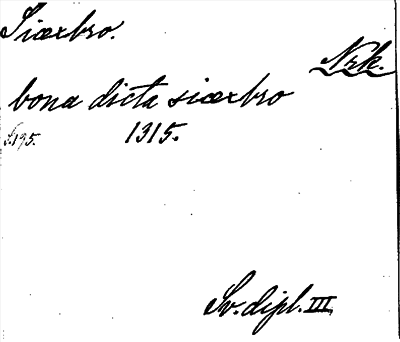 Siærbro.
Nrk.
bona dicta siærbro
s.195. 1315.
Sv. dipl. III